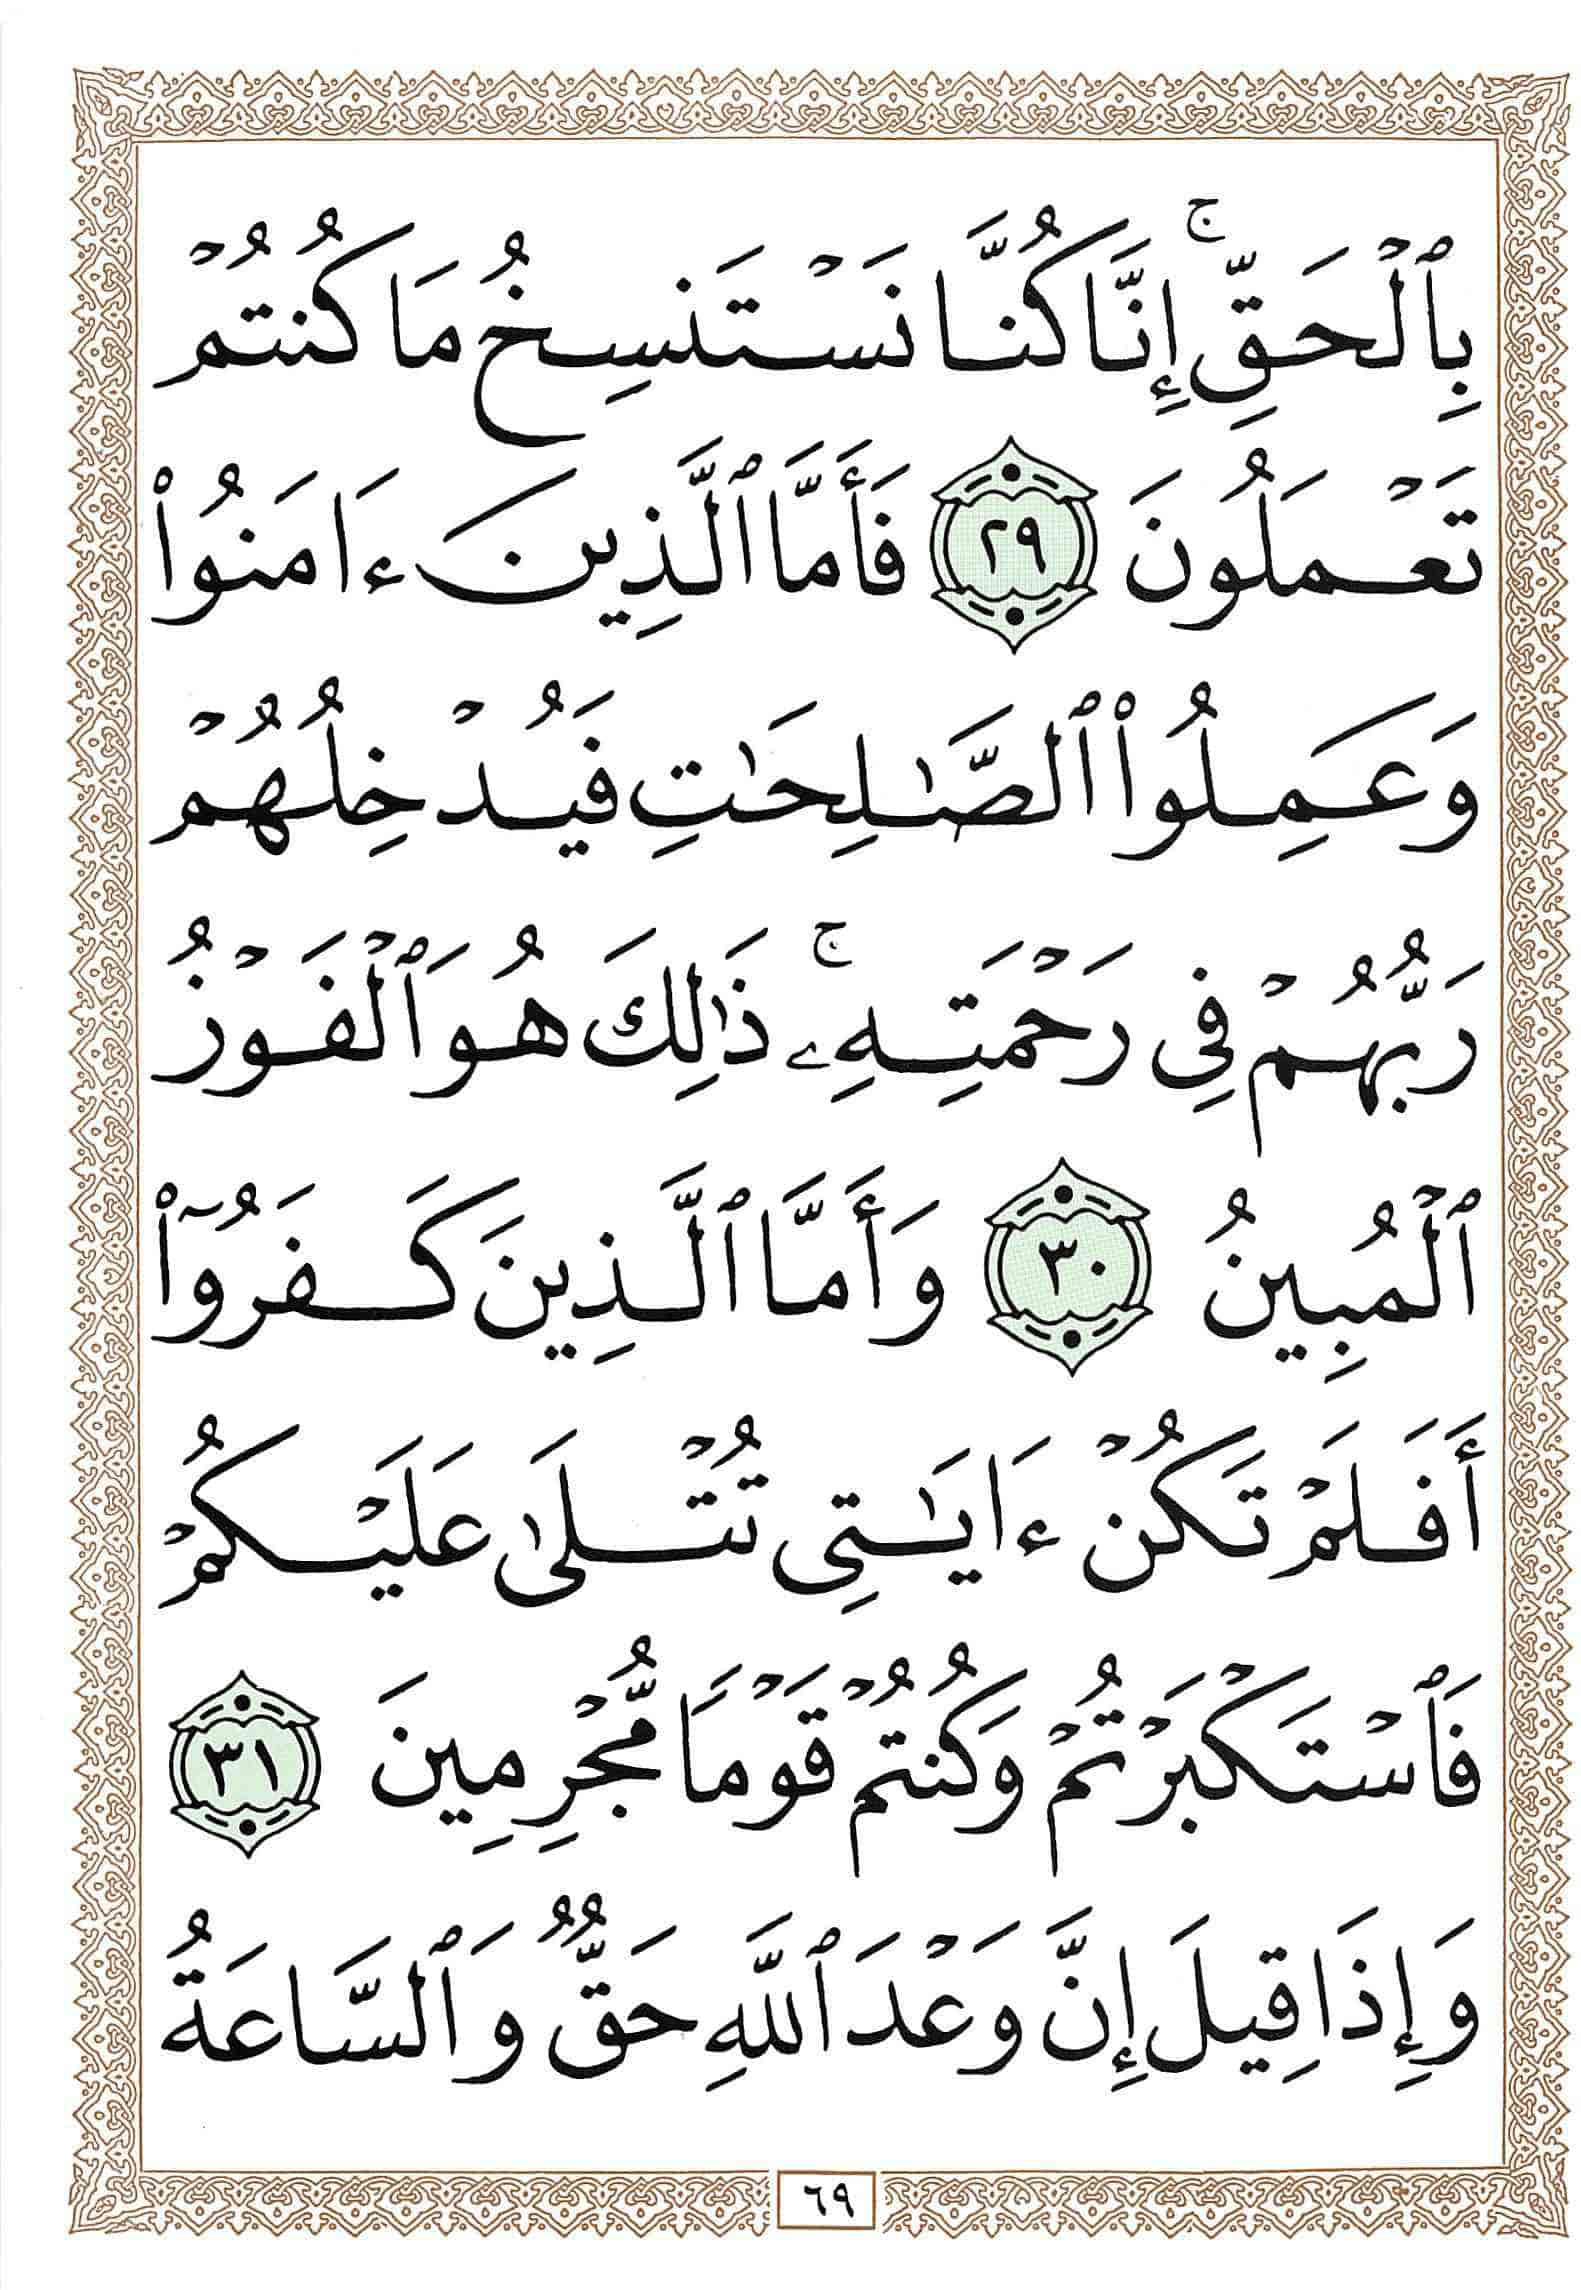 بِٱلْحَقِّ ۚ إِنَّا كُنَّا نَسْتَنسِخُ مَا كُنتُمْ
تَعْمَلُونَ ٢٩ فَأَمَّا ٱلَّذِينَ ءَامَنُوا۟
وَعَمِلُوا۟ ٱلصَّـٰلِحَـٰتِ فَيُدْخِلُهُمْ
رَبُّهُمْ فِى رَحْمَتِهِۦ ۚ ذَٰلِكَ هُوَ ٱلْفَوْزُ
ٱلْمُبِينُ ٣٠ وَأَمَّا ٱلَّذِينَ كَفَرُوٓا۟
أَفَلَمْ تَكُنْ ءَايَـٰتِى تُتْلَىٰ عَلَيْكُمْ
فَٱسْتَكْبَرْتُمْ وَكُنتُمْ قَوْمًا مُّجْرِمِينَ ٣١
وَإِذَا قِيلَ إِنَّ وَعْدَ ٱللَّهِ حَقٌّ وَٱلسَّاعَةُ
٦٩